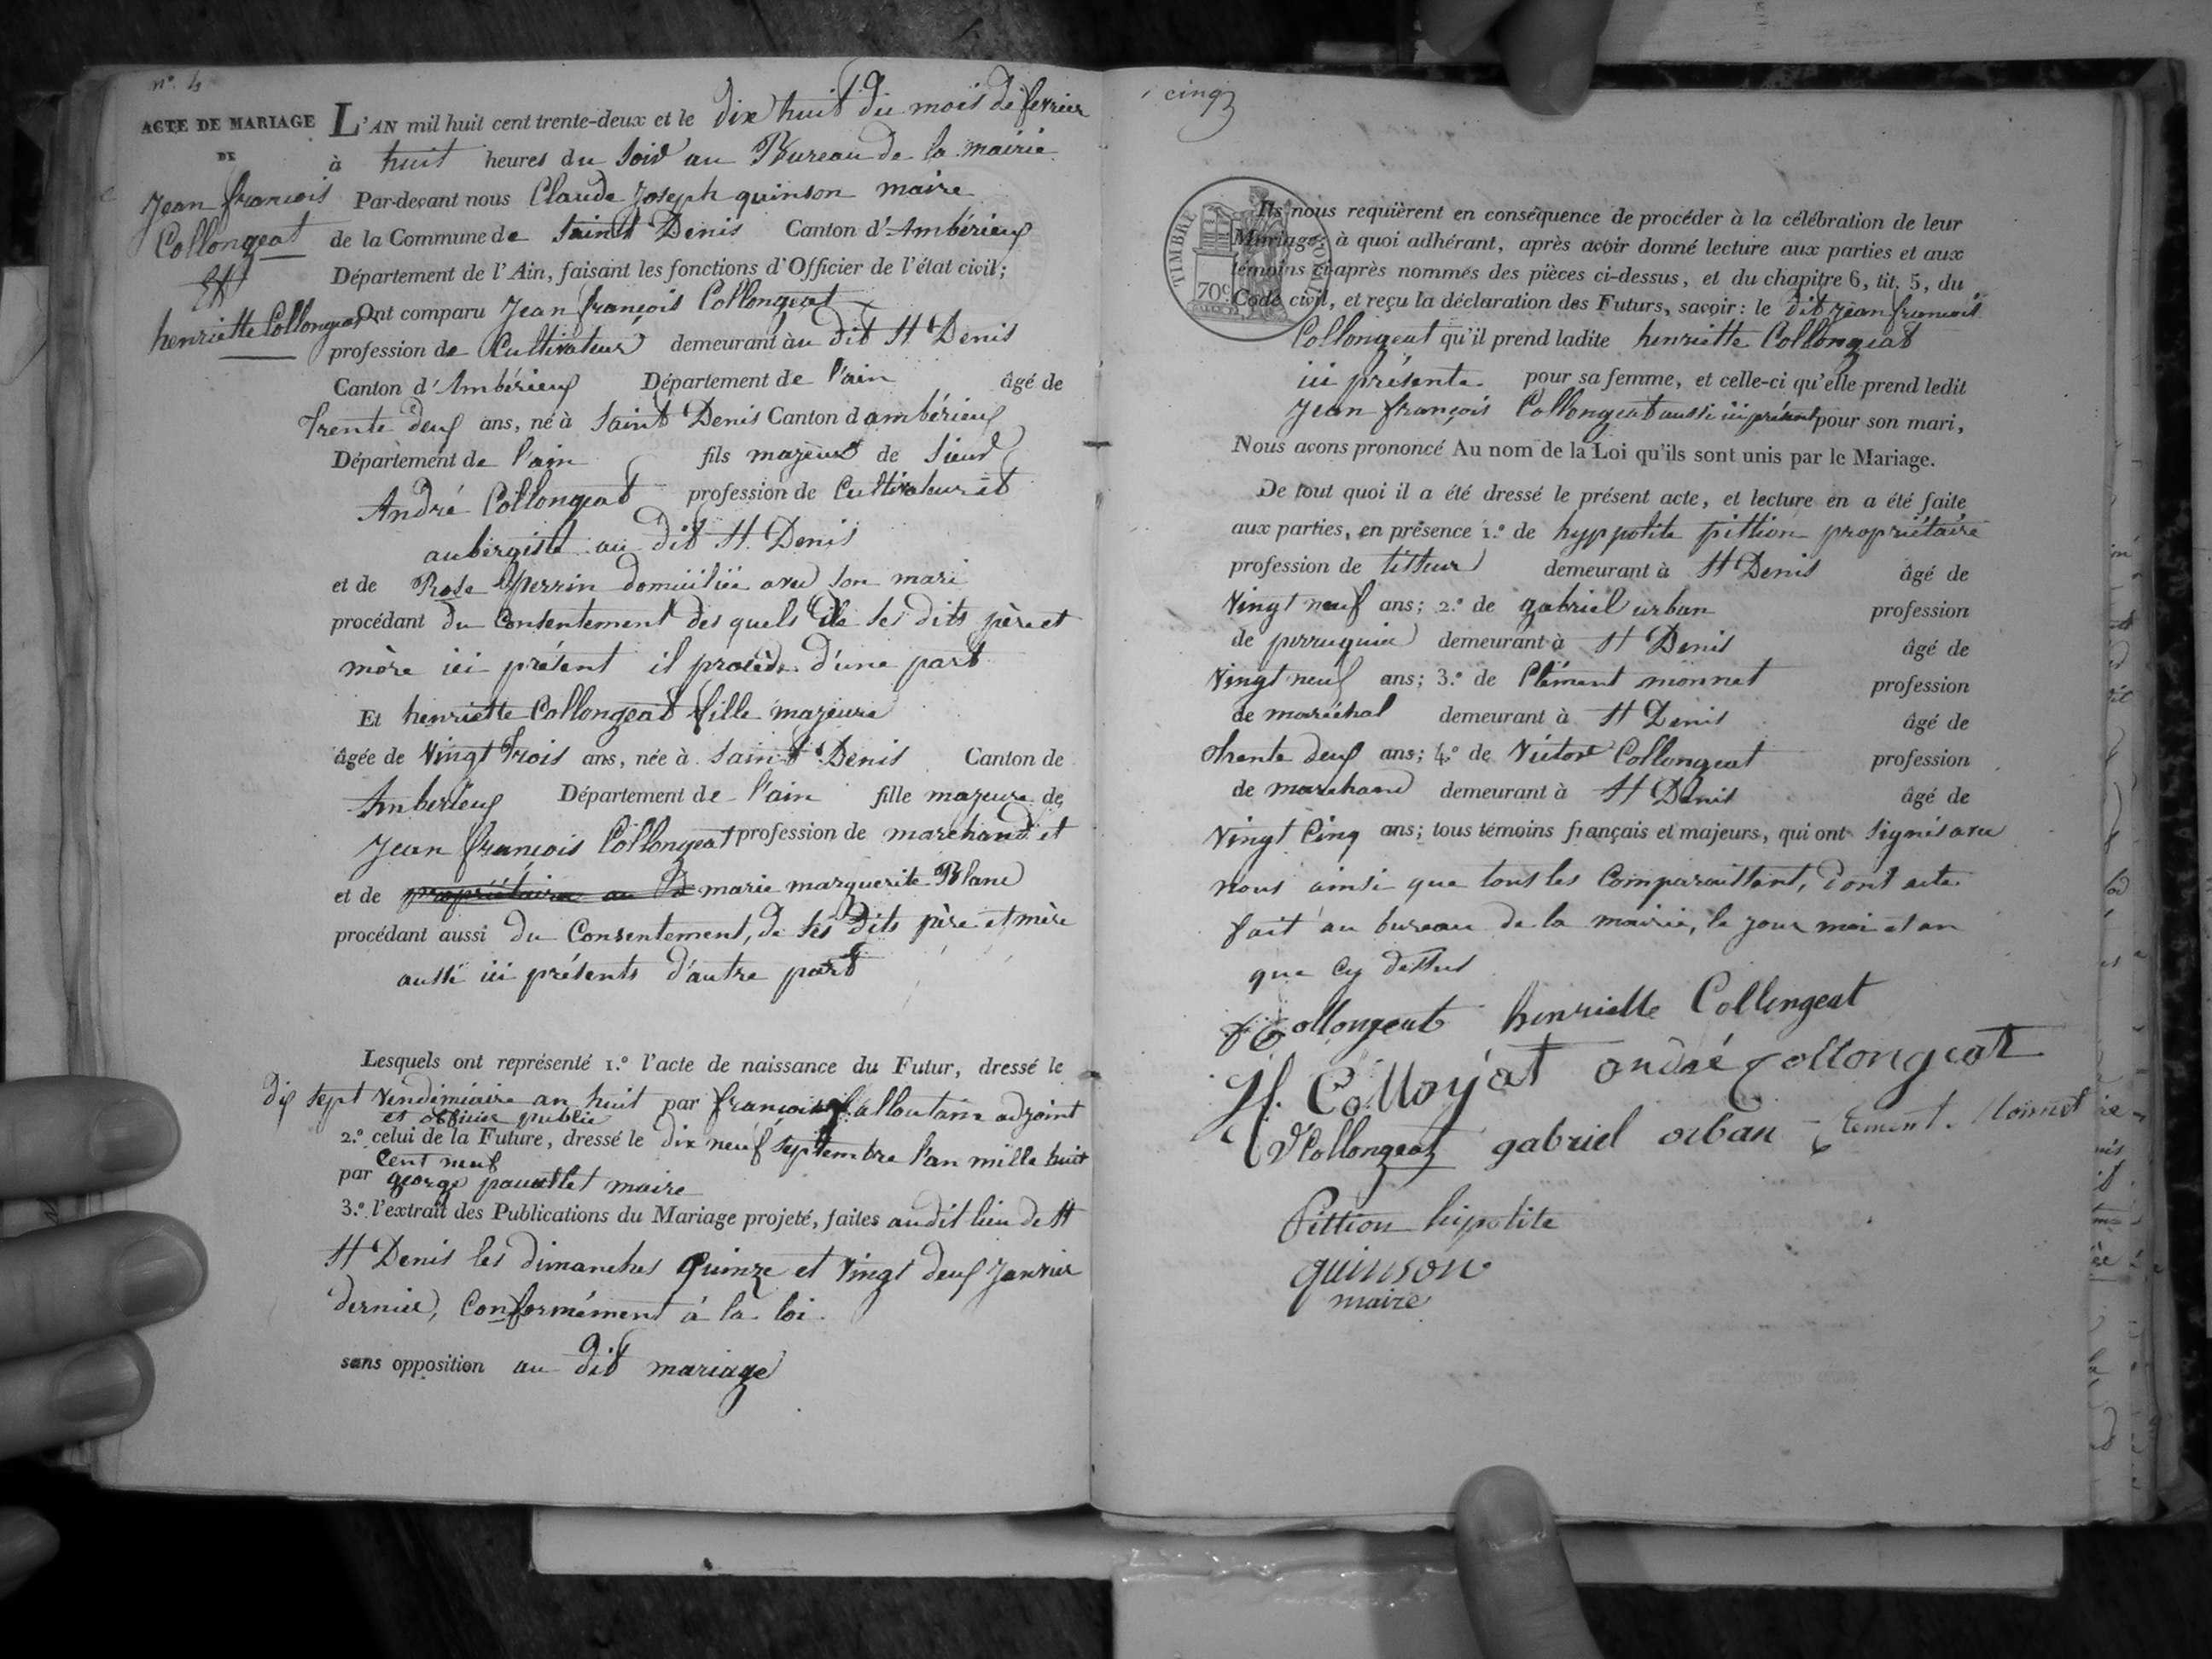 n.° 4
ACTE DE MARIAGE
DE
Jean françois
Collongeat
Et
henriette Collongeat
19
L'AN mil huit cent trente-deux et le dix huit du mois de fevrier
à huit heures du soir au Bureau de la mairie
Par-devant nous Claude Joseph quinson maire
de la Commune de Saint Denis Canton d'Ambérieux
Département de l'Ain, faisant les fonctions d'Officier de l'état civil;
Ont comparu Jean françois Collongeat
profession de Cultivateur demeurant au dit St Denis
Canton d'Ambérieux Département de l'ain âgé de
trente deux ans, né à Saint Denis Canton d'ambérieux
Département de l'ain fils majeur de Sieur
André Collongeat profession de Cultivateur et
aubergiste au dit St Denis
et de Rose perrin domiciliée avec son mari
procédant du Consentement des quels de ses dits père et
mère ici présent il procède d'une part
Et henriette Collongeat fille majeure
âgée de Vingt trois ans, née à Saint Denis Canton de
Amberieux Département de l'ain fille majeure de
Jean françois Collongeat profession de marchand et
et de propriétaire au d marie marguerite Blanc
procédant aussi du Consentement, de ses dits père et mère
aussi ici présents d'autre part
Lesquels ont représenté 1.° l'acte de naissance du Futur, dressé le
dix sept Vendimiaire an huit par françois adjoint
et officier public
2.° celui de la Future, dressé le dix neuf septembre l'an mille huit
Cent neuf
par george maire
3.° l'extrait des Publications du Mariage projeté, faites audit lieu de St
St Denis les dimanches quinze et Vingt deux Janvier
dernier, Conformément à la loi.
sans opposition au dit mariage
cinq
TIMBRE ROYAL
70c
Ils nous requièrent en conséquence de procéder à la célébration de leur
Mariage; à quoi adhérant, après avoir donné lecture aux parties et aux
témoins ci-après nommés des pièces ci-dessus, et du chapitre 6, tit. 5, du
Code civil, et reçu la déclaration des Futurs, savoir: le dit jean francois
Collongeat qu'il prend ladite henriette Collongeat
ici présente pour sa femme, et celle-ci qu'elle prend ledit
Jean françois Collongeat aussi ici présent pour son mari,
Nous avons prononcé Au nom de la Loi qu'ils sont unis par le Mariage.
De tout quoi il a été dressé le présent acte, et lecture en a été faite
aux parties, en présence 1.° de hyppolite pittion propriétaire
profession de titteur demeurant à St Denis âgé de
Vingt neuf ans; 2.° de gabriel urban profession
de perruquier demeurant à St Denis âgé de
Vingt neuf ans; 3.° de Clément monnet profession
de maréchal demeurant à St Denis âgé de
trente deux ans; 4.° de Victor Collongeat profession
de marchand demeurant à St Denis âgé de
Vingt Cinq ans; tous témoins français et majeurs, qui ont signés avec
nous ainsi que tous les Comparaissant, dont acte
fait au bureau de la mairie, le jour moi et an
que Cy dessus
Collongeat henriette Collongeat
andré Collongeat
V Collongeat gabriel orban Clement Monnet
Pittion hipolite
quinson
maire